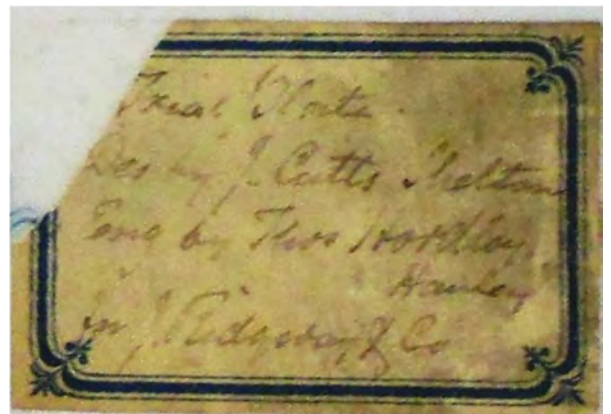 Trial Plate.
Des by J. Cutts Shelton
Eng by Thos Hordley
Hanley
for J. Ridgway & Co